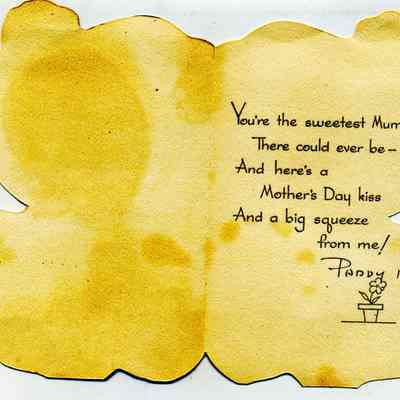 You're the sweetest Mum
There could ever be—
And here's a
Mother's Day kiss
And a big squeeze
from me!
PADDY